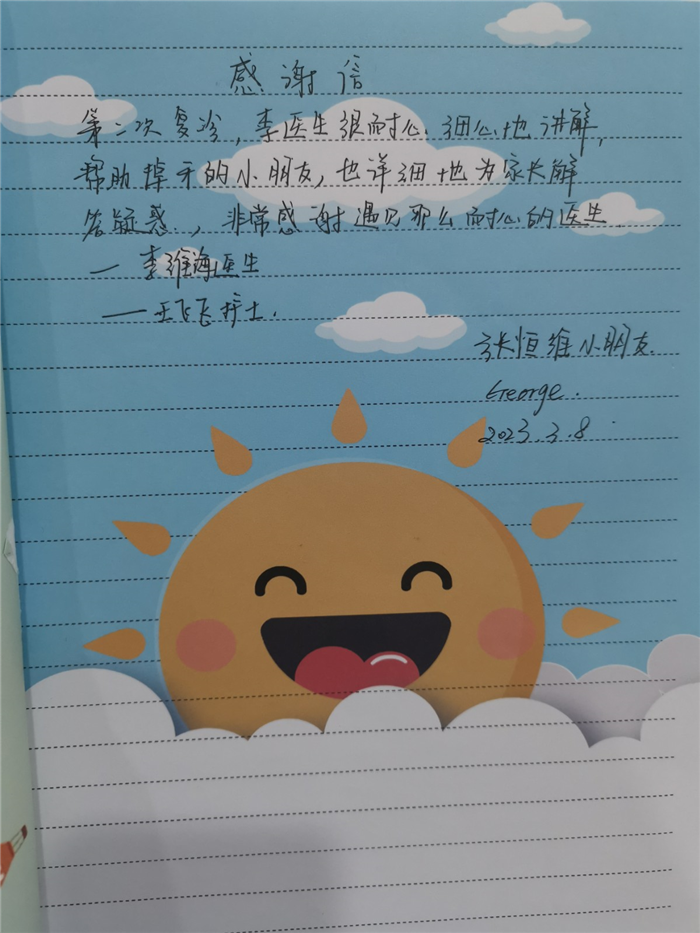 感谢信
第二次复诊,李医生很耐心细心地讲解,
帮助掉牙的小朋友,也详细地为家长解
答疑惑.,非常感谢遇见那么耐心的医生.
— 李维海医生
—— 王飞飞护士.
张恒维小朋友.
George.
2023.3.8